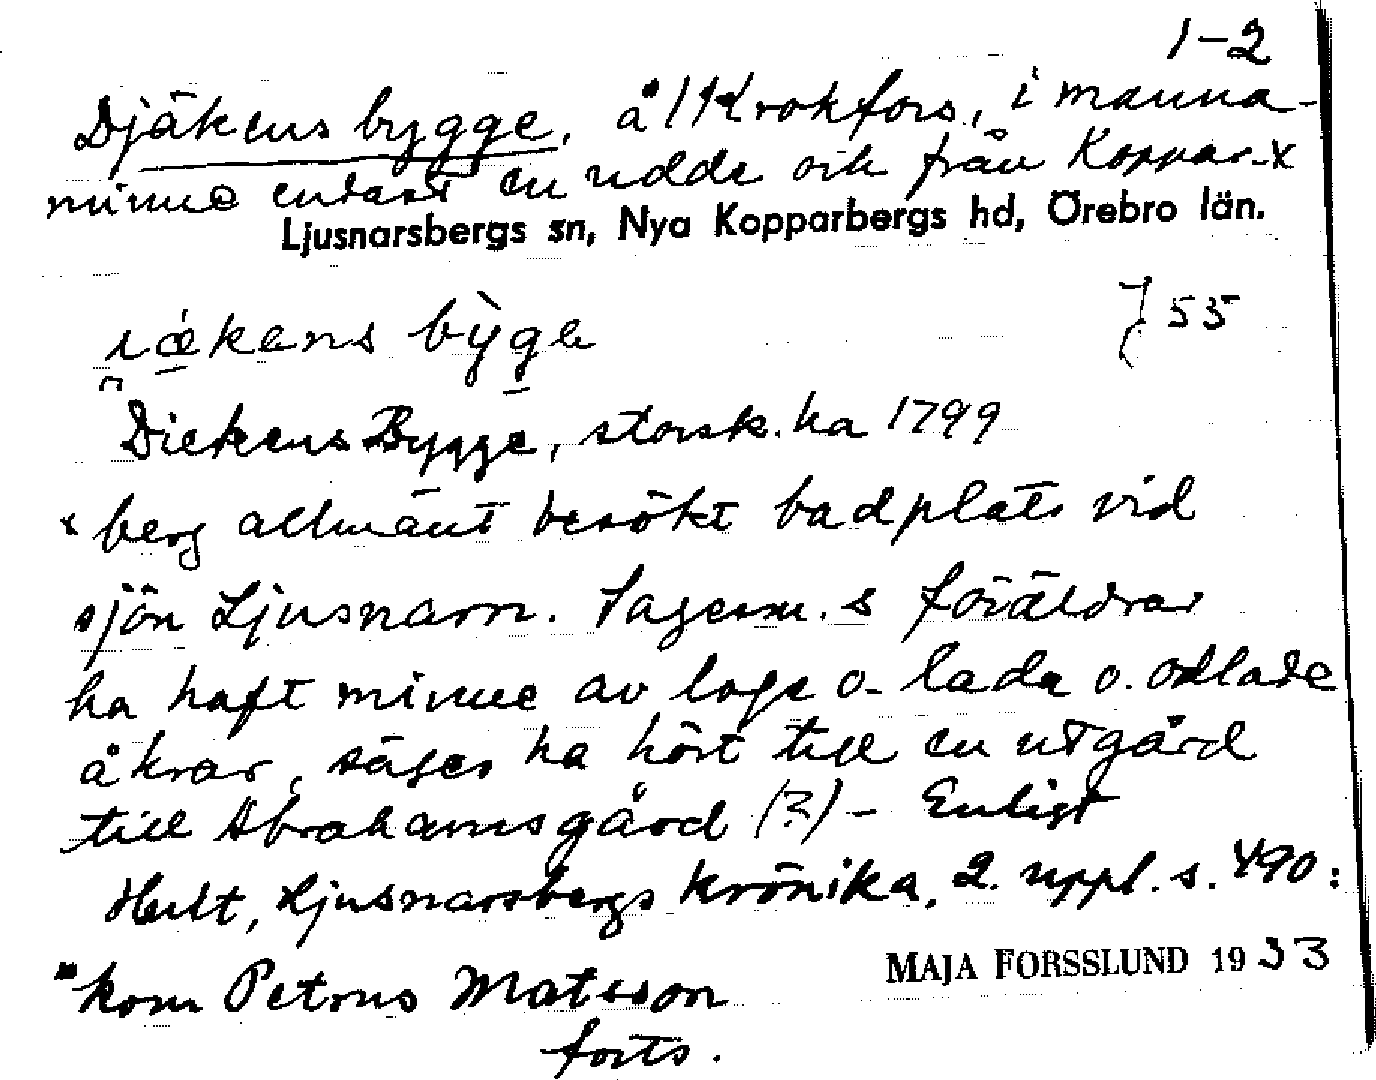 1-2
Djäkens bygge, å 1 Krokfors, i manna-
minne endast en udde och från Koppar-x
Ljusnarsbergs sn, Nya Kopparbergs hd, Örebro län.
bỳge
55
Diekens Bygge, storsk.ka 1799
x berg allmänt besökt badplats vid
sjön Ljusnarn. Sagesm.s föräldrar
ha haft minne av loge o. lada o. odlade
åkrar, säges ha hört till en utgård
till Abrahamsgård (?) - Enligt
Hult, Ljusnarsbergs krönika, 2. uppl. s. 490:
"kom Petrus Matsson
MAJA FORSSLUND 1933
forts.